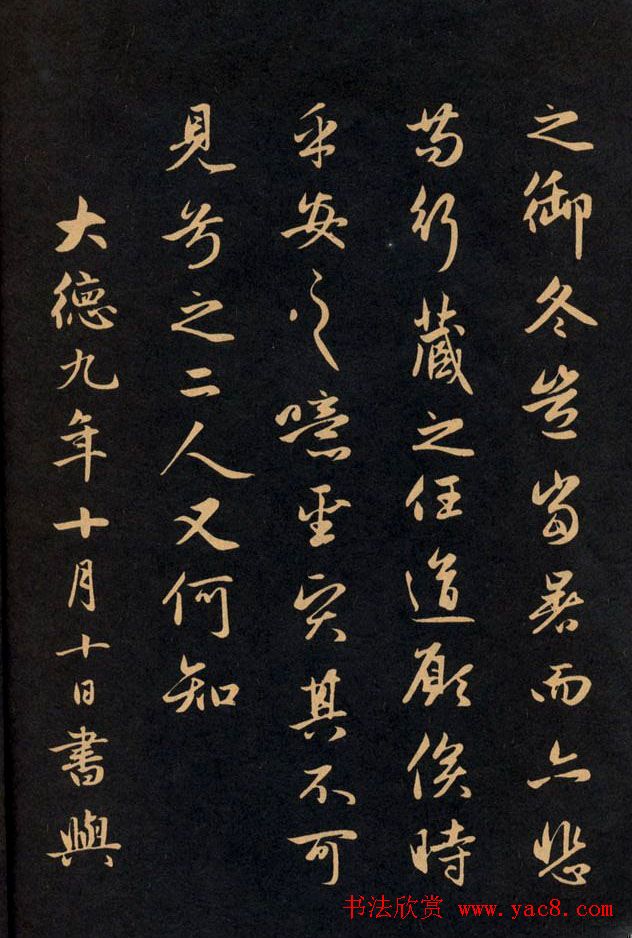 之御冬豈當暑而亦悲
苟行藏之任道顧俟時
乎安之噫聖賢其不可
見兮之二人又何知
大德九年十月十日書與
书法欣赏 www.yac8.com